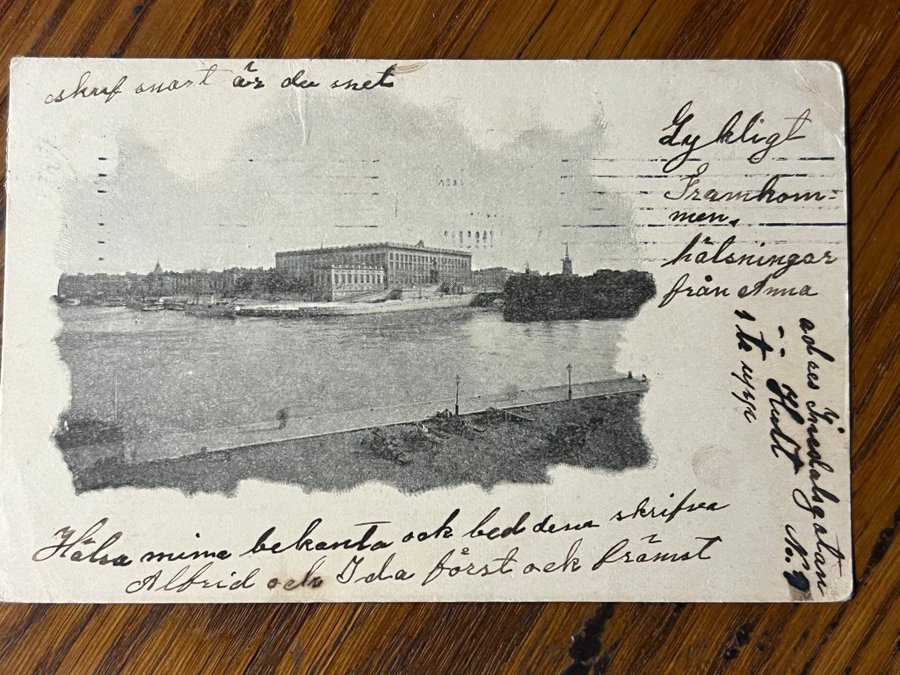 skrif snart är du snet
Lykligt
Framkom=
men,
hälsningar
från Anna
adres Inedalsgatan No. 9
Hult
1 tr upp
Hälsa mina bekanta ock bed dem skrifva
Alfrid ock Ida först ock främst